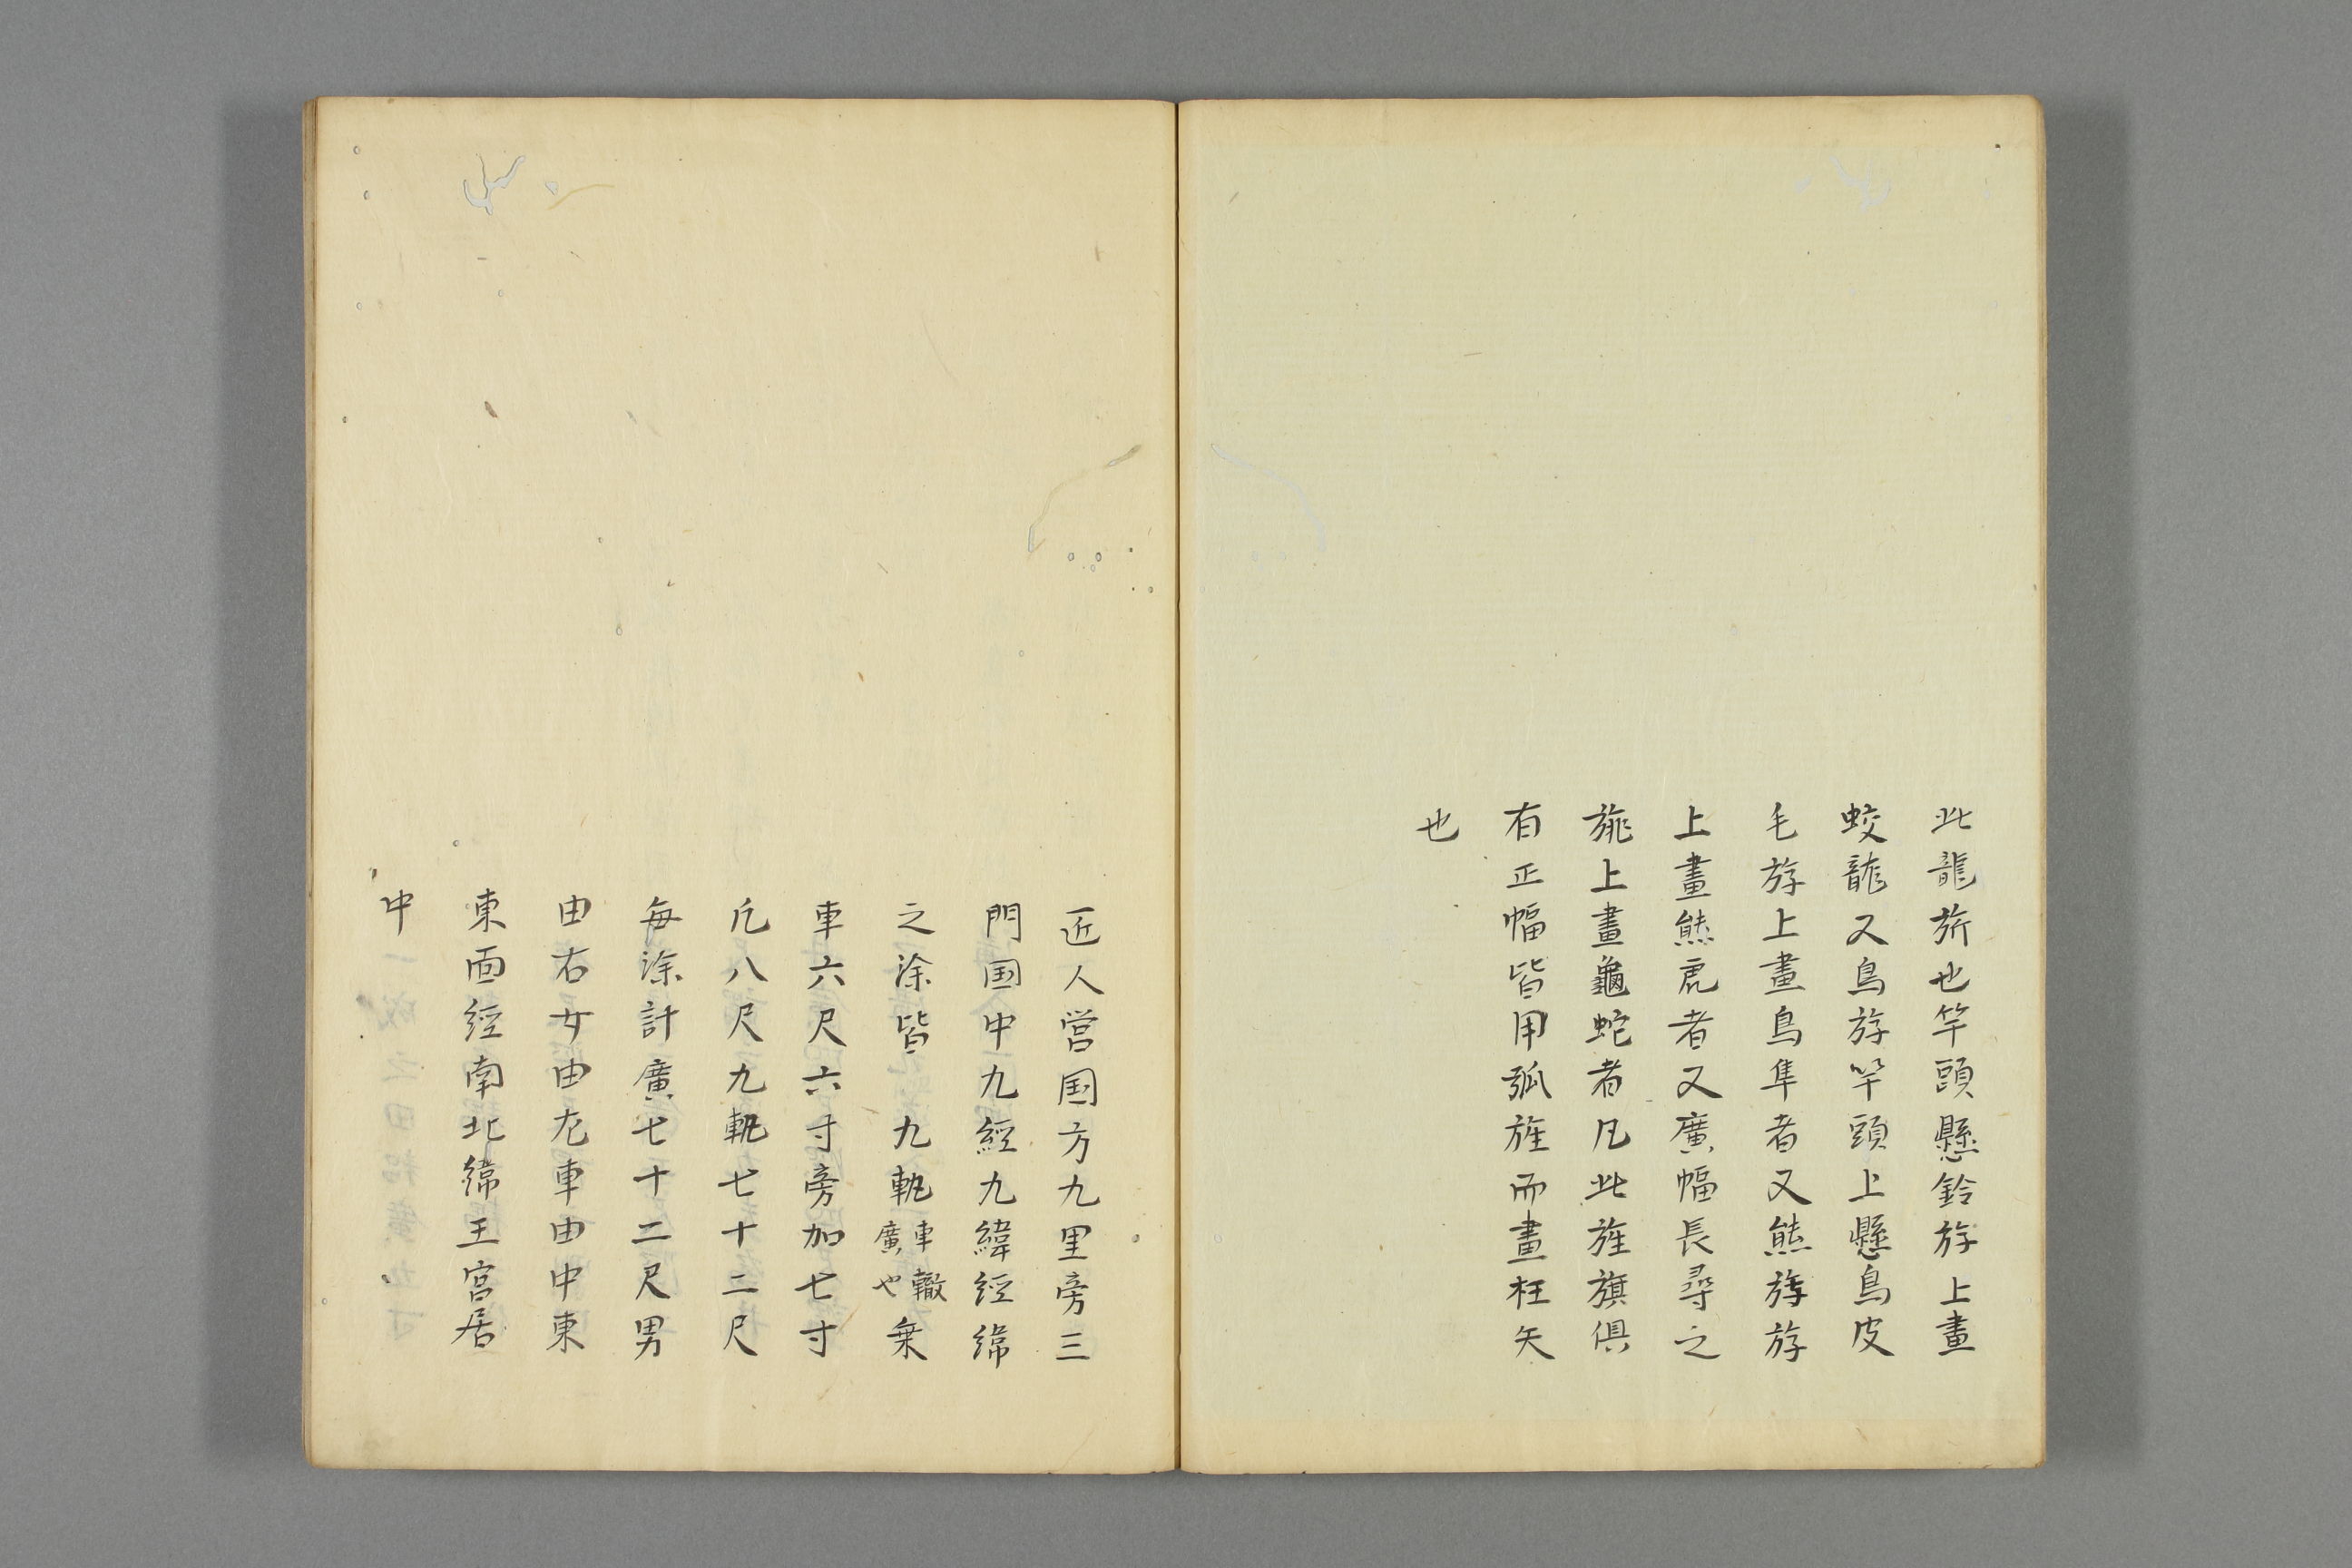 此龍旂也竿頭懸鈴斿上畫
蛟龍又鳥斿竿頭上懸鳥皮
毛斿上畫鳥隼者又熊旗斿
上畫熊虎者又廣幅長尋之
旐上畫龜蛇者凡此旌旗俱
有正幅皆用弧旌而畫枉矢
也
匠人営国方九里旁三
門国中九經九緯經緯
之涂皆九軌車轍廣也乗
車六尺六寸旁加七寸
凡八尺九軌七十二尺
每涂計廣七十二尺男
由右女由左車由中東
東面經南北緯王宮居
中